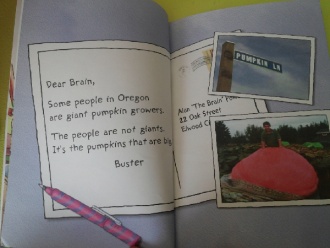 Dear Brain,
Some people in Oregon
are giant pumpkin growers.
The people are not giants.
It's the pumpkins that are big.
Buster
PUMPKIN LN
Alan "The Brain"
22 Oak Street
Elwood